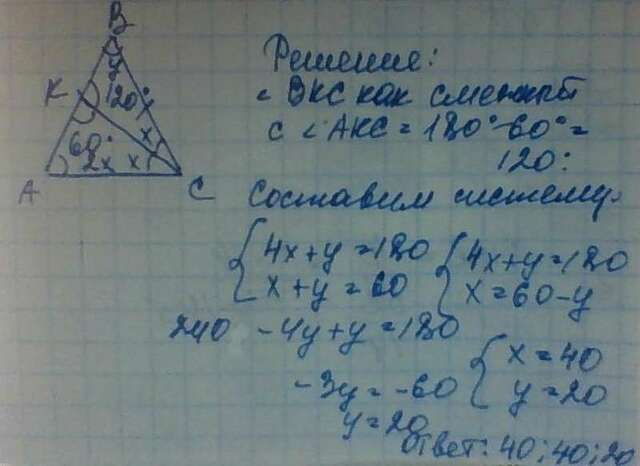 B
y
K
120°
x
60°
2x
x
A
C
Решение:
∠ BKC как смежный
с ∠ AKC = 180° - 60° =
120°
Составим систему:
{4x + y = 180 {4x + y = 180
{x + y = 60 {x = 60 - y
240 - 4y + y = 180
- 3y = - 60 {x = 40
y = 20 {y = 20
Ответ: 40; 40; 20